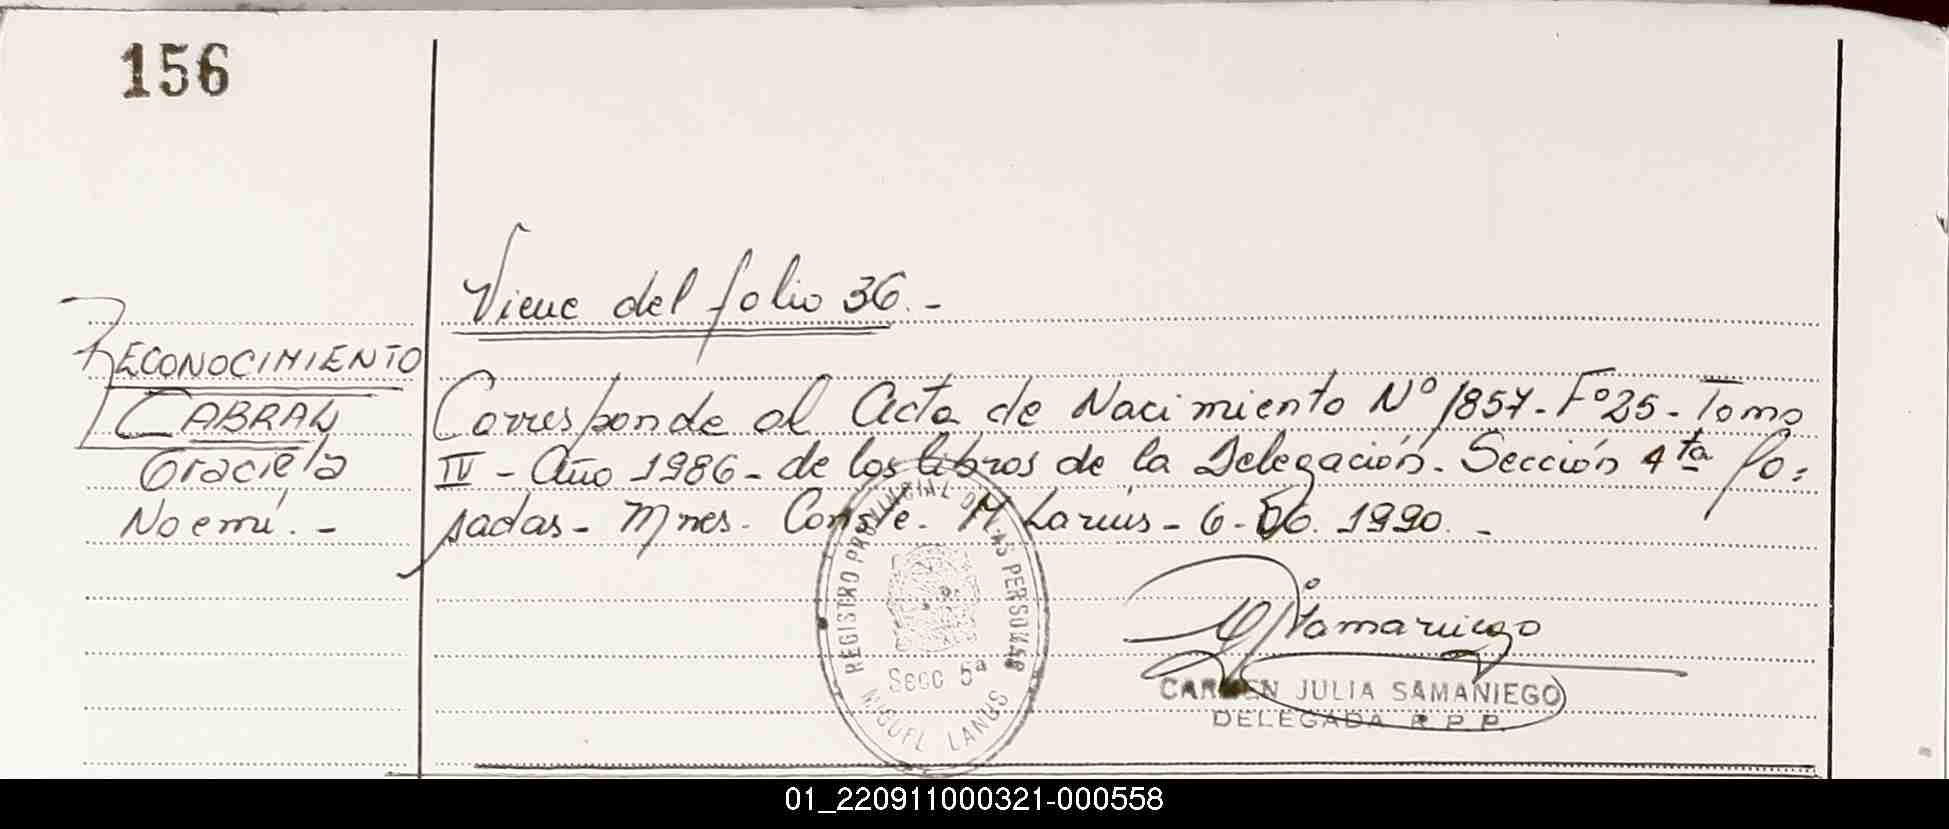 156
Viene del folio 36.-
RECONOCIMIENTO
CABRAL
Graciela
Noemí.-
Corresponde al Acta de Nacimiento Nº 1857- Fº 25- Tomo
IV - Año 1986- de los libros de la Delegación. Sección 4ta Po=
sadas- Mnes. Conste. M Lanús- 6-06.1990.-
REGISTRO PROVINCIAL DE LAS PERSONAS
Secc 5ª
MIGUEL LANUS
CARMEN JULIA SAMANIEGO
DELEGADA R.P.P.
01_220911000321-000558